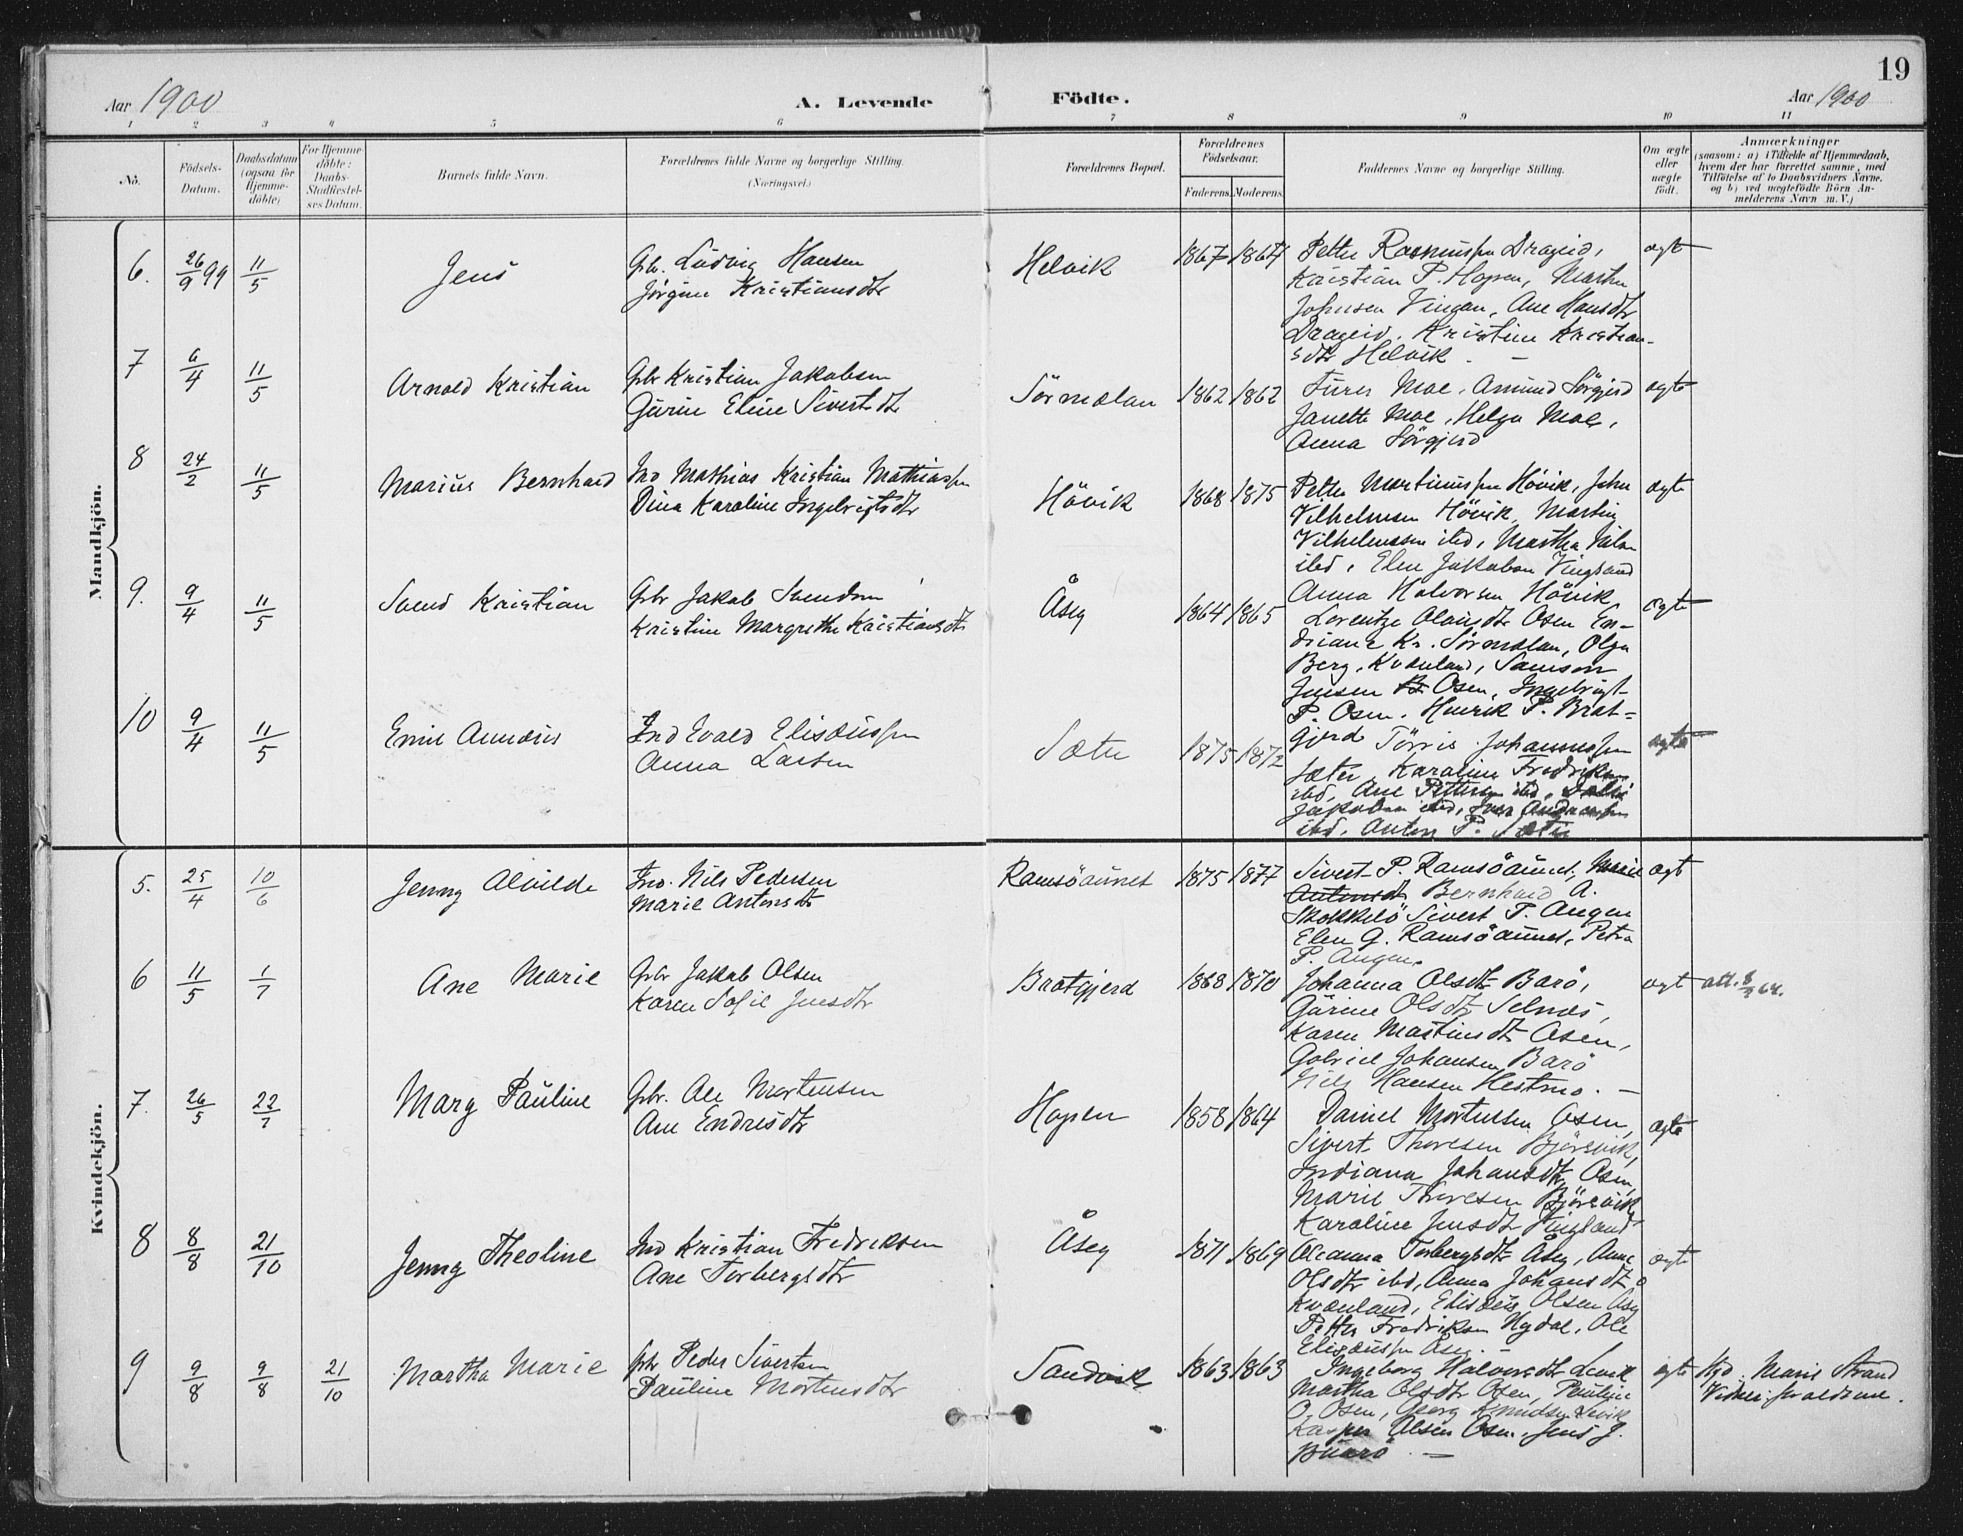 19
Aar 1900
A. Levende
Födte.
Aar 1900
1 2 3 4 5 6 7 8 9 10 11
No.
Födsels-
Datum.
Daabsdatum
(ogsaa for
Hjemme-
döbte)
For Hjemme-
döbte:
Daabs-
Stadfæstel-
ses Datum.
Barnets fulde Navn.
Forældrenes fulde Navne og borgerlige Stilling.
(Næringsvei.)
Forældrenes Bopæl.
Forældrenes
Födselsaar.
Faderens.
Moderens.
Faddernes Navne og borgerlige Stilling.
Om ægte
eller
uægte
født.
Anmærkninger
(saasom: a) i Tilfælde af Hjemmedaab,
hvem der har forrettet samme, med
Tilföielse af to Daabsvidners Navne,
og b) ved uægtefödte Börn An-
melderens Navn m. V.)
Mandkjön.
6. 26/9 99 11/5 Jens
Gbr. Ludvig Hansen
Jörgine Kristiansdtr
Helvik 1867 1864
Petter Rasmussen Drageid,
Kristian P. Hopen, Martin
Johnsen Vingan, Ane Hansdtr
Drageid, Kristine Kristian-
sdtr Helvik. —
ægte
7 6/4 11/5 Arnold Kristian
Gbr Kristian Jakobsen
Gurine Eline Sivertsdtr
Sörmelan 1862 1862
Moe, Amund Sörgjerd
Janette Moe, Helga Moe,
Anna Sörgjerd
ægte
8 24/2 11/5 Marius Bernhard
Ind Mathias Kristian Mathiassen
Dina Karoline Ingebrigtsdtr
Hövik 1868 1875
Petter Martinussen Hövik, John
Vilhelmsen Hövik, Martin
Vilhelmsen ibd, Martha
ibd, Elen Jakobsen Vingsand
Anna Halvorsen Hövik
ægte
9. 9/4 11/5 Svend Kristian
Gbr Jakob Svendsen
Kristine Margrethe Kristiansdtr
Åseg 1864 1865
Lorentze Olausdtr Osen En-
driane Kr. Sörmelan, Olga
Berg, Kvænland, Samson
Jensen Osen, Ingebrigt
P. Osen. Henrik P. Brat-
gjerd
ægte
10 9/4 11/5 Emil Anneus
Ind Evald Elisæussen
Anna Larsen
Sæter 1875 1872
Törris Johannessen
Sæter, Karoline Fredriksen
ibd, Ane Pettersen ibd,
Jakobsen ibd, Iver Andreassen
ibd, Anton P. Sæter
ægte
Kvindekjön.
5. 25/4 10/6 Jenny Alvilde
Ind. Nils Pedersen
Marie Antonsdtr
Ramsöaunet 1875 1877
Sivert P. Ramsöaunet, Marie
Antonsdt Bernhard A.
Skokkelö Sivert P. Angen
Elen G. Ramsöaunet, Petra
P. Angen.
ægt
6 11/5 1/7 Ane Marie
Gbr Jakob Olsen
Karen Sofie Jensdtr
Bratgjerd 1868 1870
Johanna Olsdtr Barö,
Gurine Olsdtr Selnæs,
Karen Martinsdtr Osen,
Gabriel Johansen Barö
Nils Hansen Hestmo. —
ægt att. 8/4 64.
7. 26/5 22/7 Mary Pauline
Gbr. Ole Mortensen
Ane Endresdtr
Hopen 1858 1864
Daniel Mortensen Osen,
Sivert Thoresen Björsvik,
Indiana Johansdtr Osen,
Marie Thoresen Björsvik
Karoline Jensdt Vingsand
ægte
8 8/8 21/10 Jenny Theoline
Ind Kristian Fredriksen
Ane Torbergsdtr
Åseg 1871 1869
Oleanna Torbergsdtr Åseg, Anne
Olsdtr ibd, Anna Johansdtr
Kvænland, Elisæus Olsen Åseg
Petter Fredriksen Nydal, Ole
Elisæussen Åseg. —
ægte
9 9/8 9/8 21/10 Martha Marie
Gbr Peder Sivertsen
Pauline Mortensdtr
Sandvik 1863 1863
Ingeborg Halvorsdtr Sevik
Martha Olsdtr Osen, Pauline
O. Osen, Georg Knudsen Sevik
Kasper Olsen Osen, Jens J.
Buarö. —
ægte Hjd. Marie Strand